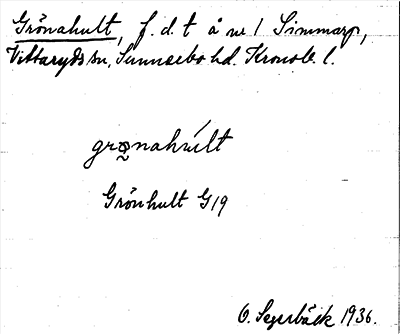 Grönahult, f. d. t å nr 1 Simmarp,
Vittaryds sn, Sunnerbo hd. Kronob. l.
grø̰nahúlt
Grönhult G19
O. Segerbäck 1936.